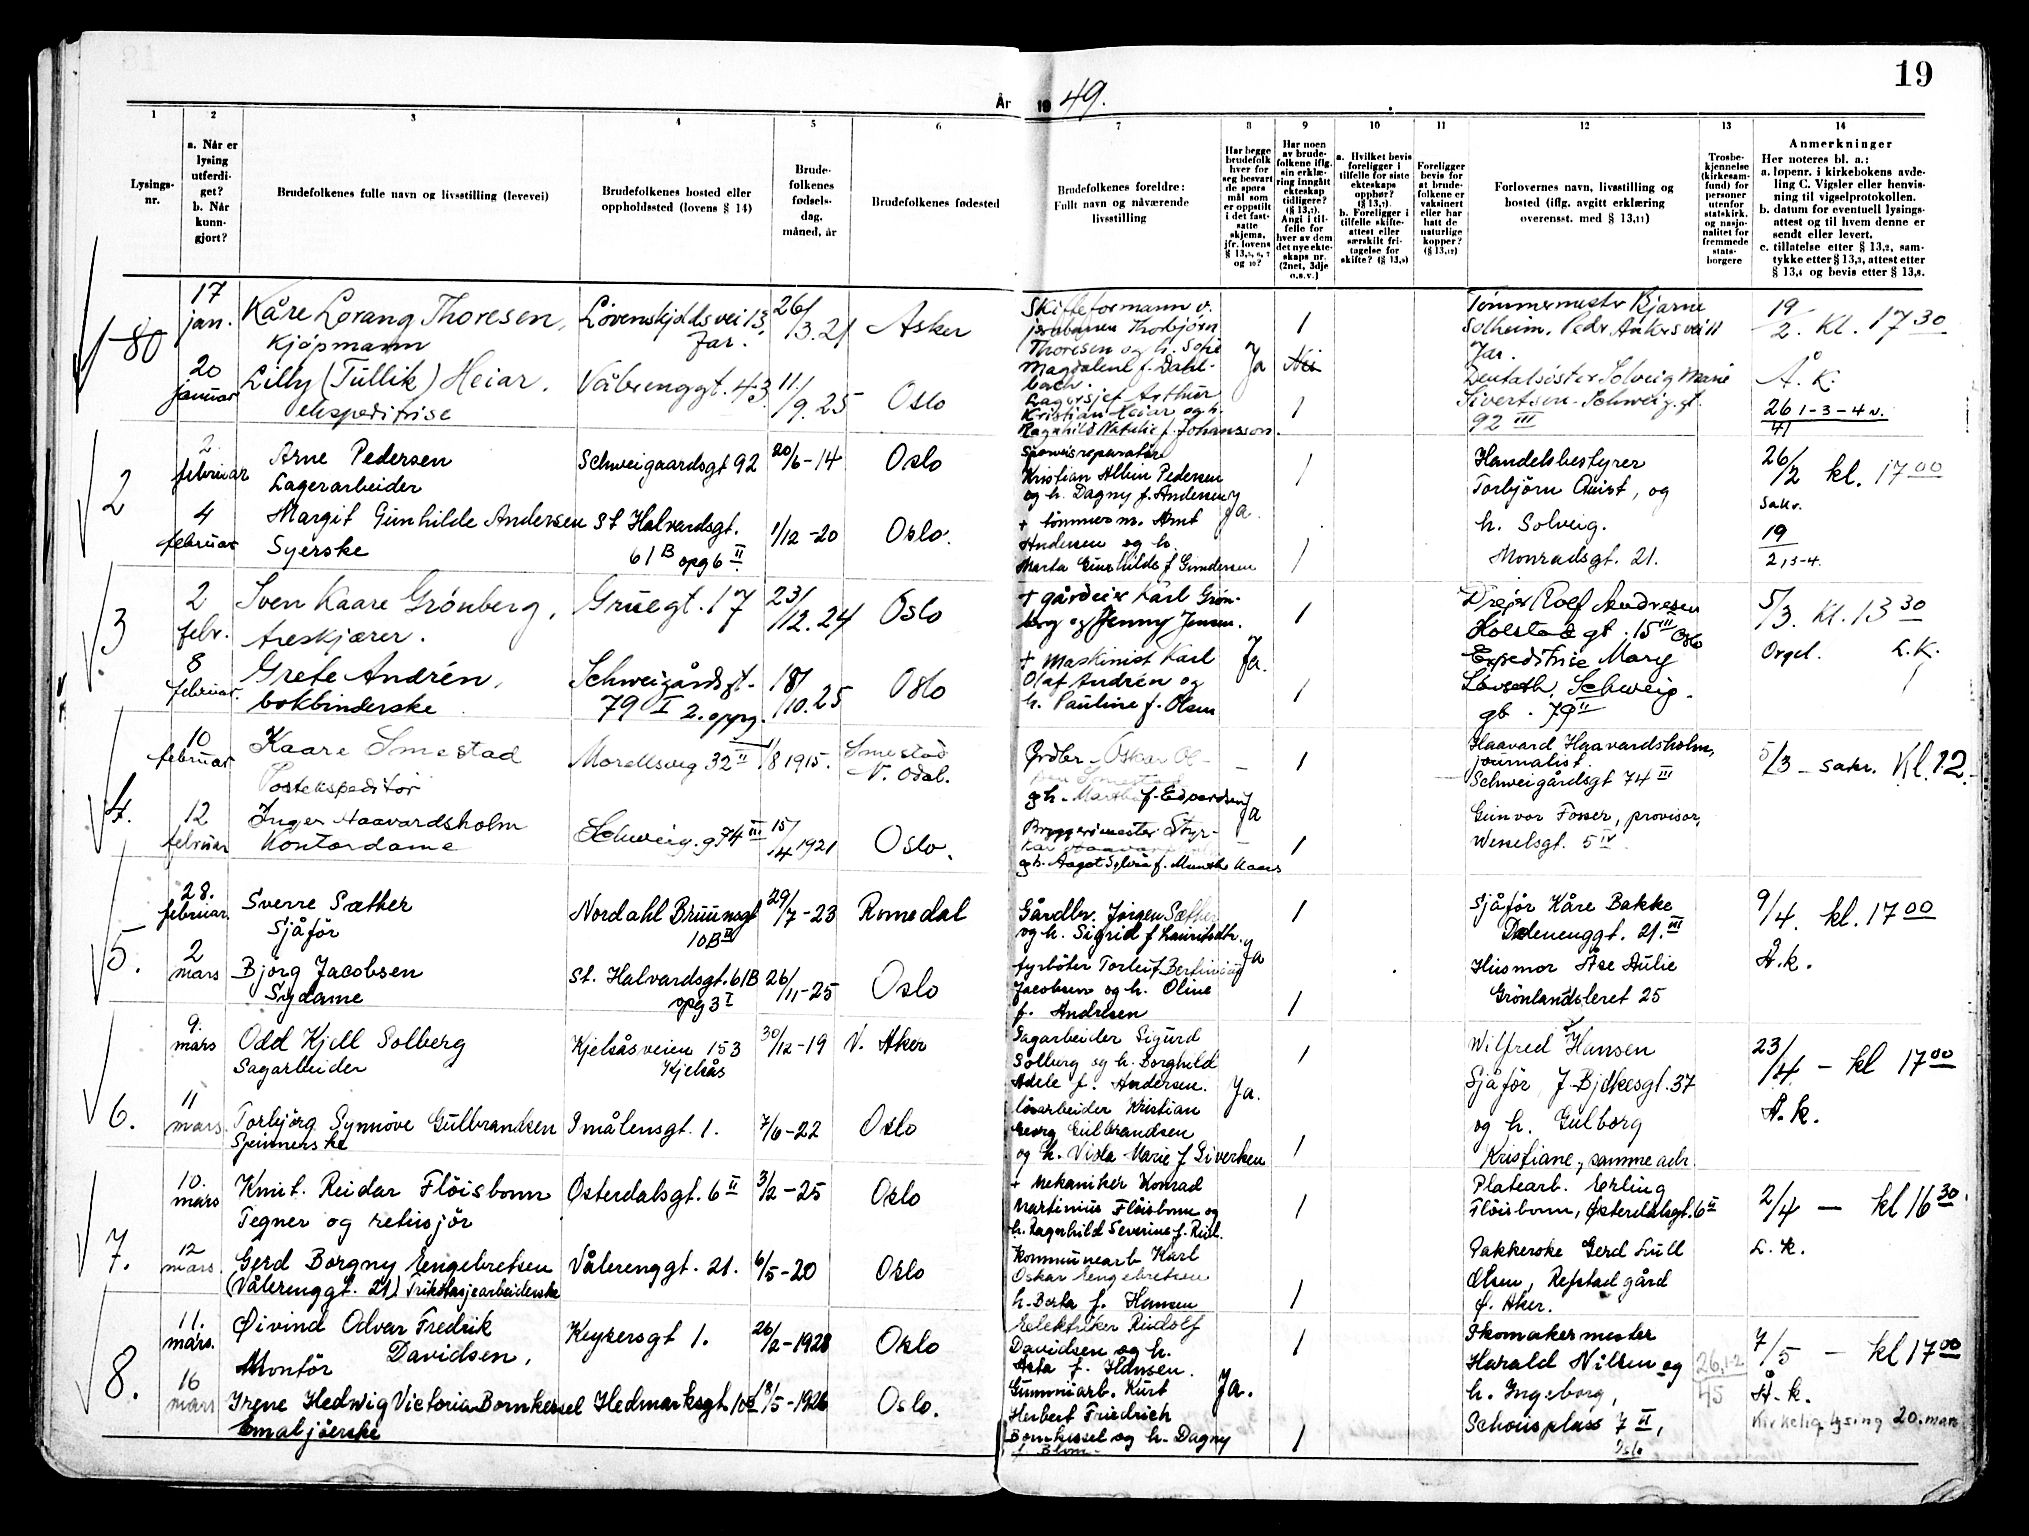 19
År 1949.
1 2 3 4 5 6 7 8 9 10 11 12 13 14
Lysings-
nr.
a. Når er
lysing
utferdi-
get?
b. Når
kunn-
gjort?
Brudefolkenes fulle navn og livsstilling (levevei)
Brudefolkenes bosted eller
oppholdssted (lovens § 14)
Brude-
folkenes
fødsels-
dag,
måned, år
Brudefolkenes fødested
Brudefolkenes foreldre:
Fullt navn og nåværende
livsstilling
Har begge
brudefolk
hver for
seg besvart
de spørs
mål som
er oppstilt
i det fast-
satte
skjema,
jfr. lovens
§ 13,5, 6, 7
og 10?
Har noen
av brude-
folkene iflg.
sin erklæ-
ring inngått
ekteskap
tidligere?
(§ 13,7).
Angi i til-
felle for
hver av dem
det nye ekte-
skaps nr.
(2net, 3dje
o.s.v.)
a. Hvilket bevis
foreligger i
tilfelle for siste
ekteskaps
opphør?
(§ 13,7).
b. Foreligger i
tilfelle skifte-
attest eller
særskilt fri-
tagelse for
skifte? (§ 13,9)
Foreligger
bevis for
at brude-
folkene er
vaksinert
eller har
hatt de
naturlige
kopper?
(§ 13,12)
Forlovernes navn, livsstilling og
bosted (iflg. avgitt erklæring
overensst. med § 13,11)
Trosbe-
kjennelse
(kirkesam-
fund) for
personer
utenfor
statskirk.
og nasjo-
nalitet for
fremmede
stats-
borgere
Anmerkninger
Her noteres bl. a.:
a. løpenr. i kirkebokens avde-
ling C. Vigsler eller henvis-
ning til vigselprotokollen.
b. datum for eventuell lysings-
attest og til hvem denne er
sendt eller levert.
c. tillatelse etter § 13,2, sam-
tykke etter § 13,3, attest etter
§ 13,4 og bevis etter § 13,8.
80
17
jan.
Kåre Lorang Thoresen,
Kjøpmann
Løvenskjoldsvei 13,
Jar.
26/3.21
Asker
Skifteformann v.
jernbanen Thorbjørn
Thoresen og h. Sofie
Magdalene f. Dahl-
bach.
Ja
1
Nei
Tømmermester Bjarne
Solheim, Peder Ankersvei 11
Jar.
19/2. Kl. 17 30
20
januar
Lilly (Tullik) Heiar.
ekspeditrise
Vålerenggt. 43.
11/9.25
Oslo
Lagersjef Arthur
Kristian Heiar og h.
Ragnhild Natalie f. Johansson.
1
Dentalsøster Solveig Marie
Sivertsen. Schweig. gt.
92 III
Å. K.
26 1-3-4 v.
41
2
2.
februar
Arne Pedersen
Lagerarbeider
Schweigaardsgt 92
20/6-14
Oslo
Kristian Albin Pedersen
og h. Dagny f. Andersen
Ja
1
Handelsbestyrer
Torbjörn Quist, og
h. Solveig.
Monradsgt. 21.
26/2 kl. 17 00
sakr.
19
2,3-4.
4
februar
Margit Gunhilde Andersen
Syerske
St Halvardsgt.
61 B opg 6 II
1/12-20
Oslo.
+ tömmerm. Arnt
Andersen og h.
Marta Gunhilde f Gundersen
1
3
2
febr.
Sven Kaare Grönberg,
Areskjærer.
Gruegt. 17
23/12.24
Oslo
+ gårdeier Karl Grøn-
berg og Jenny Jensen.
Ja.
1
Drejer Rolf Andresen
Holstads gt. 15 III Oslo
5/3. Kl. 13 30
Orgel. L.K.
8
februar.
Grete Andrén,
bokbinderske
Schweigårdsgt.
79 I 2. oppg.
18/10.25
Oslo
+ Maskinist Karl
Olaf Andrén og
h. Pauline f. Olsen
1
Expeditrise Mary
Schweig.
gt. 79 II
4.
10
februar
Kaare Smestad
Postekspeditör
Morellsveg 32 II
1/8 1915.
Smestad
N. Odal.
Grdbr. Oskar Ol-
sen Smestad
og h. Marthe f. Edvardsen
Ja
1
Haavard Haavardsholm,
journalist.
Schweigårdsgt 74 III
5/3 - sakr. Kl. 12.
12
februar
Inger Haavardsholm
Kontordame
Schweig. g 74 III
15/4 1921
Oslo.
Bryggerimester Styr-
kar Haavardsholm
gh. Aagot Sylvia f. Munthe Kaas
1
Gunvor Fosser, provisor,
Wesselsgt. 5 IV
5.
28.
februar.
Sverre Sæther
Sjåför
Nordahl Bruunsgt
10 B II
29/7-23
Romedal
Gårdbr. Jörgen Sæther
og h. Sigrid f Lauritsdtr.
Ja
1
Sjåför Kåre Bakke
Dælenenggt. 21. III
9/4. kl. 17 00
Å.k.
2
mars
Björg Jacobsen
Sydame
St. Halvardsgt. 61B
opg 3 I
26/11-25
Oslo
fyrböter Torleif Bertinius
Jacobsen og h. Oline
f. Andresen
1
Husmor Åse Aulie
Grönlandsleret 25
6.
9.
mars
Odd Kjell Solberg
Sagarbeider
Kjelsåsveien 153
Kjelsås
30/12-19
V. Aker
Sagarbeider Sigurd
Solberg og h. Borghild
Adele f. Andersen.
Ja.
1
Wilfred Hansen
Sjåför, J. Bjelkesgt. 37
og h. Gulborg
Kristiane, samme adr.
23/4 - kl 17 00
Å.k.
11
mars.
Torbjörg Synnöve Gulbrandsen
Spinnerske
Smålensgt. 1.
7/6-22
Oslo
lösarbeider Kristian
Georg Gulbrandsen
og h. Viola Marie f Siversen
1
7.
10.
mars
Knut Reidar Flöisbonn
Tegner og retusjör
Østerdalsgt. 6 II
3/2-25
Oslo
+ Mekaniker Konrad
Martinius Flöisbonn og
h. Ragnhild Severine f. Rud.
1
Platearb. Erling
Flöisbonn, Østerdalsgt. 6 II
2/4 - kl 16 30.
L. k.
12
mars.
Gerd Borgny Engebretsen
(Vålerenggt. 21) Trikotasjearbeiderske
Vålerenggt. 21.
6/5-20
Oslo
Kommunearb. Karl
Oskar Engebretsen
h. Berta f. Hansen
1
Pakkerske Gerd Lull
Olsen, Refstad gård
Ø. Aker.
8.
11.
mars.
Øivind Odvar Fredrik
Davidsen,
Montör
Keysersgt 1.
26/2-1928
Oslo
Elektriker Rudolf
Davidsen og h.
Asta f. Hansen.
Ja.
1
Skomakermester
Harald Nilsen og
h. Ingeborg,
Schousplass 7 II,
Oslo
26,1-2
45
7/5 - kl 17 00
Å.k.
Kirkelig lysing 20. mars
16
mars
Irene Hedwig Victoria Bornkessel
Emaljöerske
Hedmarksgt 10 II
18/5-1926
Oslo.
Gummiarb. Kurt
Herbert Friedrich
Bornkessel og h. Dagny
f. Blom.
1